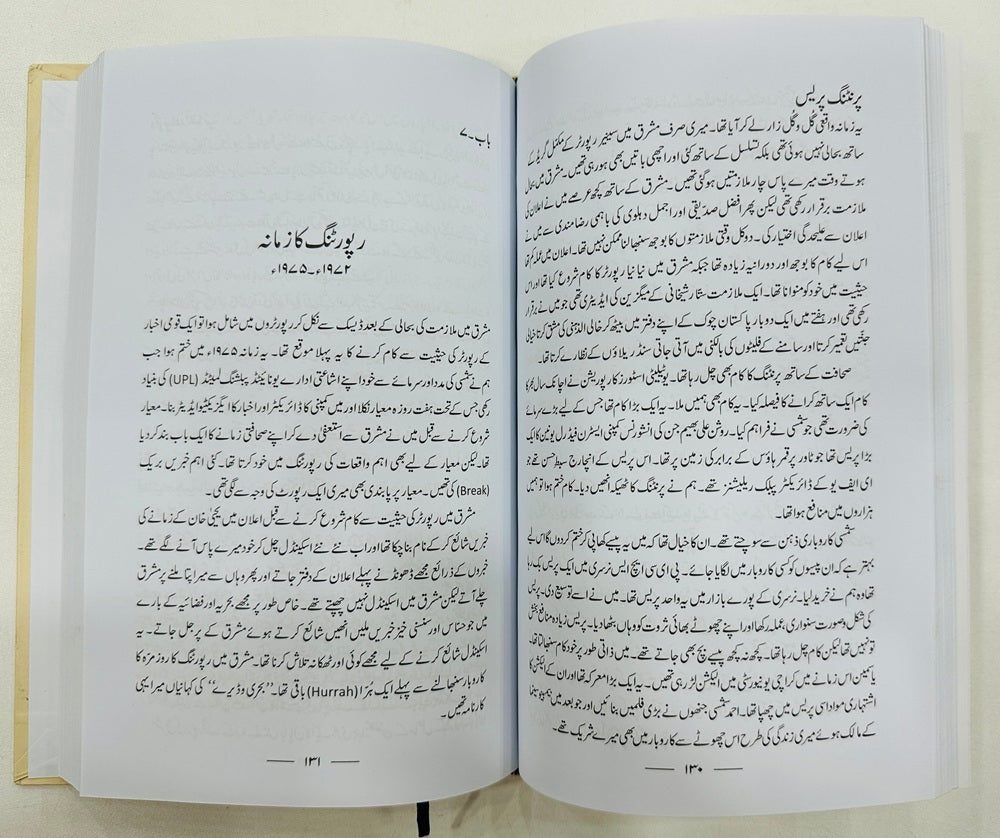 پرنٹنگ پریس
یہ زمانہ واقعی گُل و گُل زار لے کر آیا تھا۔ میری صرف مشرق میں سینیر رپورٹر کے مکمل گریڈ کے
ساتھ بحالی نہیں ہوئی تھی بلکہ تسلسل کے ساتھ کئی اور اچھی باتیں بھی ہو رہی تھیں۔ مشرق میں بحال
ہوتے وقت میرے پاس چار ملازمتیں ہوگئی تھیں۔ مشرق کے ساتھ کچھ عرصے میں نے اعلان کی
ملازمت برقرار رکھی تھی لیکن پھر افضل صدّیقی اور اجمل دہلوی کی باہمی رضامندی سے میں نے
اعلان سے علیحدگی اختیار کی۔ دو کل وقتی ملازمتوں کا بوجھ سنبھالنا ممکن نہیں تھا۔ اعلان میں عملہ کم تھا
اس لیے کام کا بوجھ اور دورانیہ زیادہ تھا جبکہ مشرق میں نیا نیا رپورٹر کا کام شروع کیا تھا اور اس
حیثیت میں خود کو منوانا تھا۔ ایک ملازمت ستار شیخانی کے میگزین کی ایڈیٹری تھی جو میں نے برقرار
رکھی تھی اور ہفتے میں ایک دو بار پاکستان چوک کے اپنے دفتر میں بیٹھ کر خالی الذہنی کی مشق کرتا خیالی
جنّتیں تعمیر کرتا اور سامنے کے فلیٹوں کی بالکنی میں آتی جاتی سنڈریلاؤں کے نظارے کرتا تھا۔
صحافت کے ساتھ پرنٹنگ کا کام بھی چل رہا تھا۔ یوٹیلیٹی اسٹورز کارپوریشن نے اچانک سال بھر کا
کام ایک ساتھ کرانے کا فیصلہ کیا۔ یہ کام بھی ہمیں ملا۔ یہ ایک بڑا کام تھا جس کے لیے بڑے سرمائے
کی ضرورت تھی جو شمسی نے فراہم کیا۔ روشن علی بھیم جی کی انشورنس کمپنی ایسٹرن فیڈرل یونین کا ایک
بڑا پریس تھا جو ٹاور پر قمر ہاؤس کے برابر کی زمین پر تھا۔ اس پریس کے انچارج سبطِ حسن تھے جو
ای ایف یو کے ڈائریکٹر پبلک ریلیشنز تھے۔ ہم نے پرنٹنگ کا ٹھیکہ انھیں دیا۔ کام ختم ہوا تو ہمیں
ہزاروں میں منافع ہوا تھا۔
شمسی کاروباری ذہن سے سوچتے تھے۔ ان کا خیال تھا کہ میں یہ پیسے کھا پی کر ختم کردوں گا اس لیے
بہتر ہے کہ ان پیسوں کو کسی کاروبار میں لگایا جائے۔ پی ای سی ایچ ایس نرسری میں ایک پریس بک رہا
تھا وہ ہم نے خرید لیا۔ نرسری کے پورے بازار میں یہ واحد پریس تھا۔ میں نے اسے توسیع دی۔ پریس
کی شکل و صورت سنواری، عملہ رکھا اور اپنے چھوٹے بھائی ثروت کو وہاں بٹھا دیا۔ پریس زیادہ منافع بخش
تو نہیں تھا لیکن کام چل رہا تھا۔ کچھ نہ کچھ پیسے بچ بھی جاتے تھے۔ میں ذاتی طور پر خود کام سنبھالتا تھا۔
یاسمین اس زمانے میں کراچی یونیورسٹی میں الیکشن لڑ رہی تھیں۔ یہ ایک بڑا معرکہ تھا اور ان کے الیکشن کا
اشتہاری مواد اسی پریس میں چھپا تھا۔ احمد شمسی جنھوں نے بڑی فلمیں بنائیں اور جو بعد میں بمبینو سینما
کے مالک ہوئے میری زندگی کی طرح اس چھوٹے سے کاروبار میں بھی میرے شریک تھے۔
۱۳۰
باب۔۷
رپورٹنگ کا زمانہ
۱۹۷۲ء۔۱۹۷۵ء
مشرق میں ملازمت کی بحالی کے بعد ڈیسک سے نکل کر رپورٹروں میں شامل ہوا تو ایک قومی اخبار
کے رپورٹر کی حیثیت سے کام کرنے کا یہ پہلا موقع تھا۔ یہ زمانہ ۱۹۷۵ء میں ختم ہوا جب
ہم نے شمسی کی مدد اور سرمائے سے خود اپنے اشاعتی ادارے یونائیٹڈ پبلشنگ لمیٹڈ (UPL) کی بنیاد
رکھی جس کے تحت ہفت روزہ معیار نکلا اور میں کمپنی کا ڈائریکٹر اور اخبار کا ایگزیکٹیو ایڈیٹر بنا۔ معیار
شروع کرنے سے قبل میں نے مشرق سے استعفیٰ دے کر اپنے صحافتی زمانے کا ایک باب بند کر دیا
تھا۔ لیکن معیار کے لیے بھی اہم واقعات کی رپورٹنگ میں خود کرتا تھا۔ کئی اہم خبریں بریک
(Break) کی تھیں۔ معیار پر پابندی بھی میری ایک رپورٹ کی وجہ سے لگی تھی۔
مشرق میں رپورٹر کی حیثیت سے کام شروع کرنے سے قبل اعلان میں یحییٰ خان کے زمانے کی
خبریں شائع کر کے نام بنا چکا تھا اور اب نئے نئے اسکینڈل چل کر خود میرے پاس آنے لگے تھے۔
خبروں کے ذرائع مجھے ڈھونڈنے پہلے اعلان کے دفتر جاتے اور پھر وہاں سے میرا پتا ملنے پر مشرق
چلے آتے لیکن مشرق میں اسکینڈل نہیں چھپتے تھے۔ خاص طور پر مجھے بحریہ اور فضائیہ کے بارے
میں جو حساس اور سنسنی خیز خبریں ملیں انھیں شائع کرتے ہوئے مشرق کے پر جل جاتے۔ یہ
اسکینڈل شائع کرنے کے لیے مجھے کوئی اور ٹھکانہ تلاش کرنا تھا۔ مشرق میں رپورٹنگ کا روزمرہ کا
کاروبار سنبھالنے سے پہلے ایک ہُرّا (Hurrah) باقی تھا۔ ”بحری وڈیرے“ کی کہانیاں میرا یہی
کارنامہ تھیں۔
۱۳۱